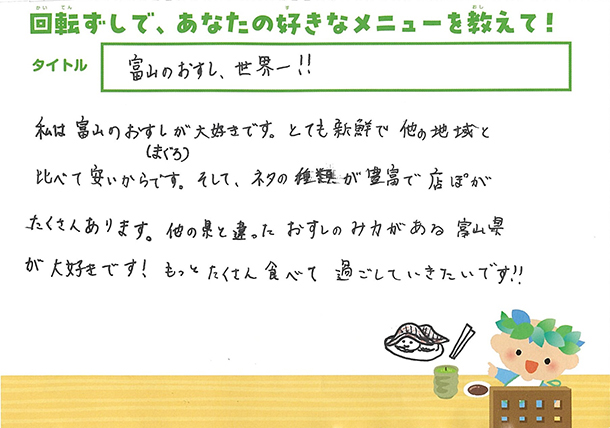 回転ずしで、あなたの好きなメニューを教えて!
タイトル
富山のおすし、世界一!!
私は富山のおすしが大好きです。とても新鮮で他の地域と
(まぐろ)
比べて安いからです。そして、ネタの種類が豊富で店ぽが
たくさんあります。他の県と違ったおすしのみ力がある富山県
が大好きです!もっとたくさん食べて過ごしていきたいです!!